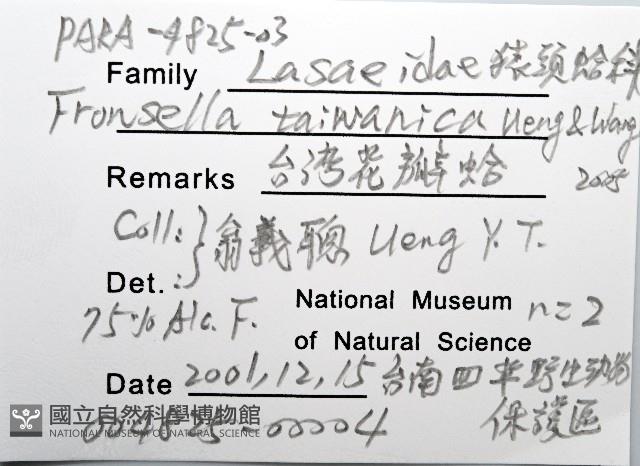 PARA-4825-03
Family Lasaeidae 猿頭蛤科
Fronsella taiwanica Ueng & Wang
2005
Remarks 台湾花瓣蛤
Coll:
Det.: } 翁義聰 Ueng Y. T.
75% Alc. F. National Museum n=2
of Natural Science
Date 2001,12,15 台南四草野生动物
保護區
00004
國立自然科學博物館
NATIONAL MUSEUM OF NATURAL SCIENCE